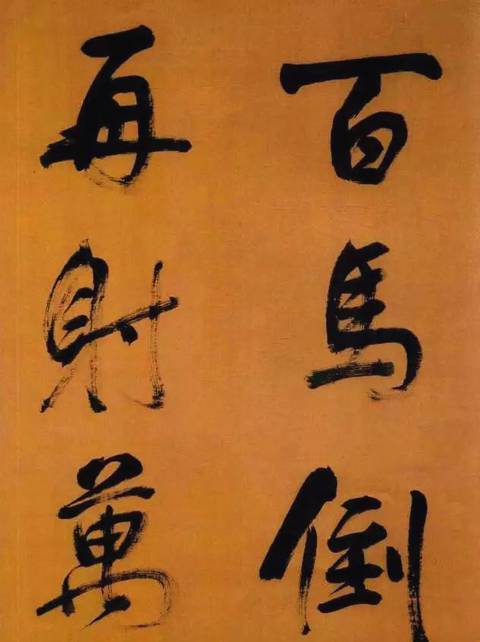 百馬倒
再射萬